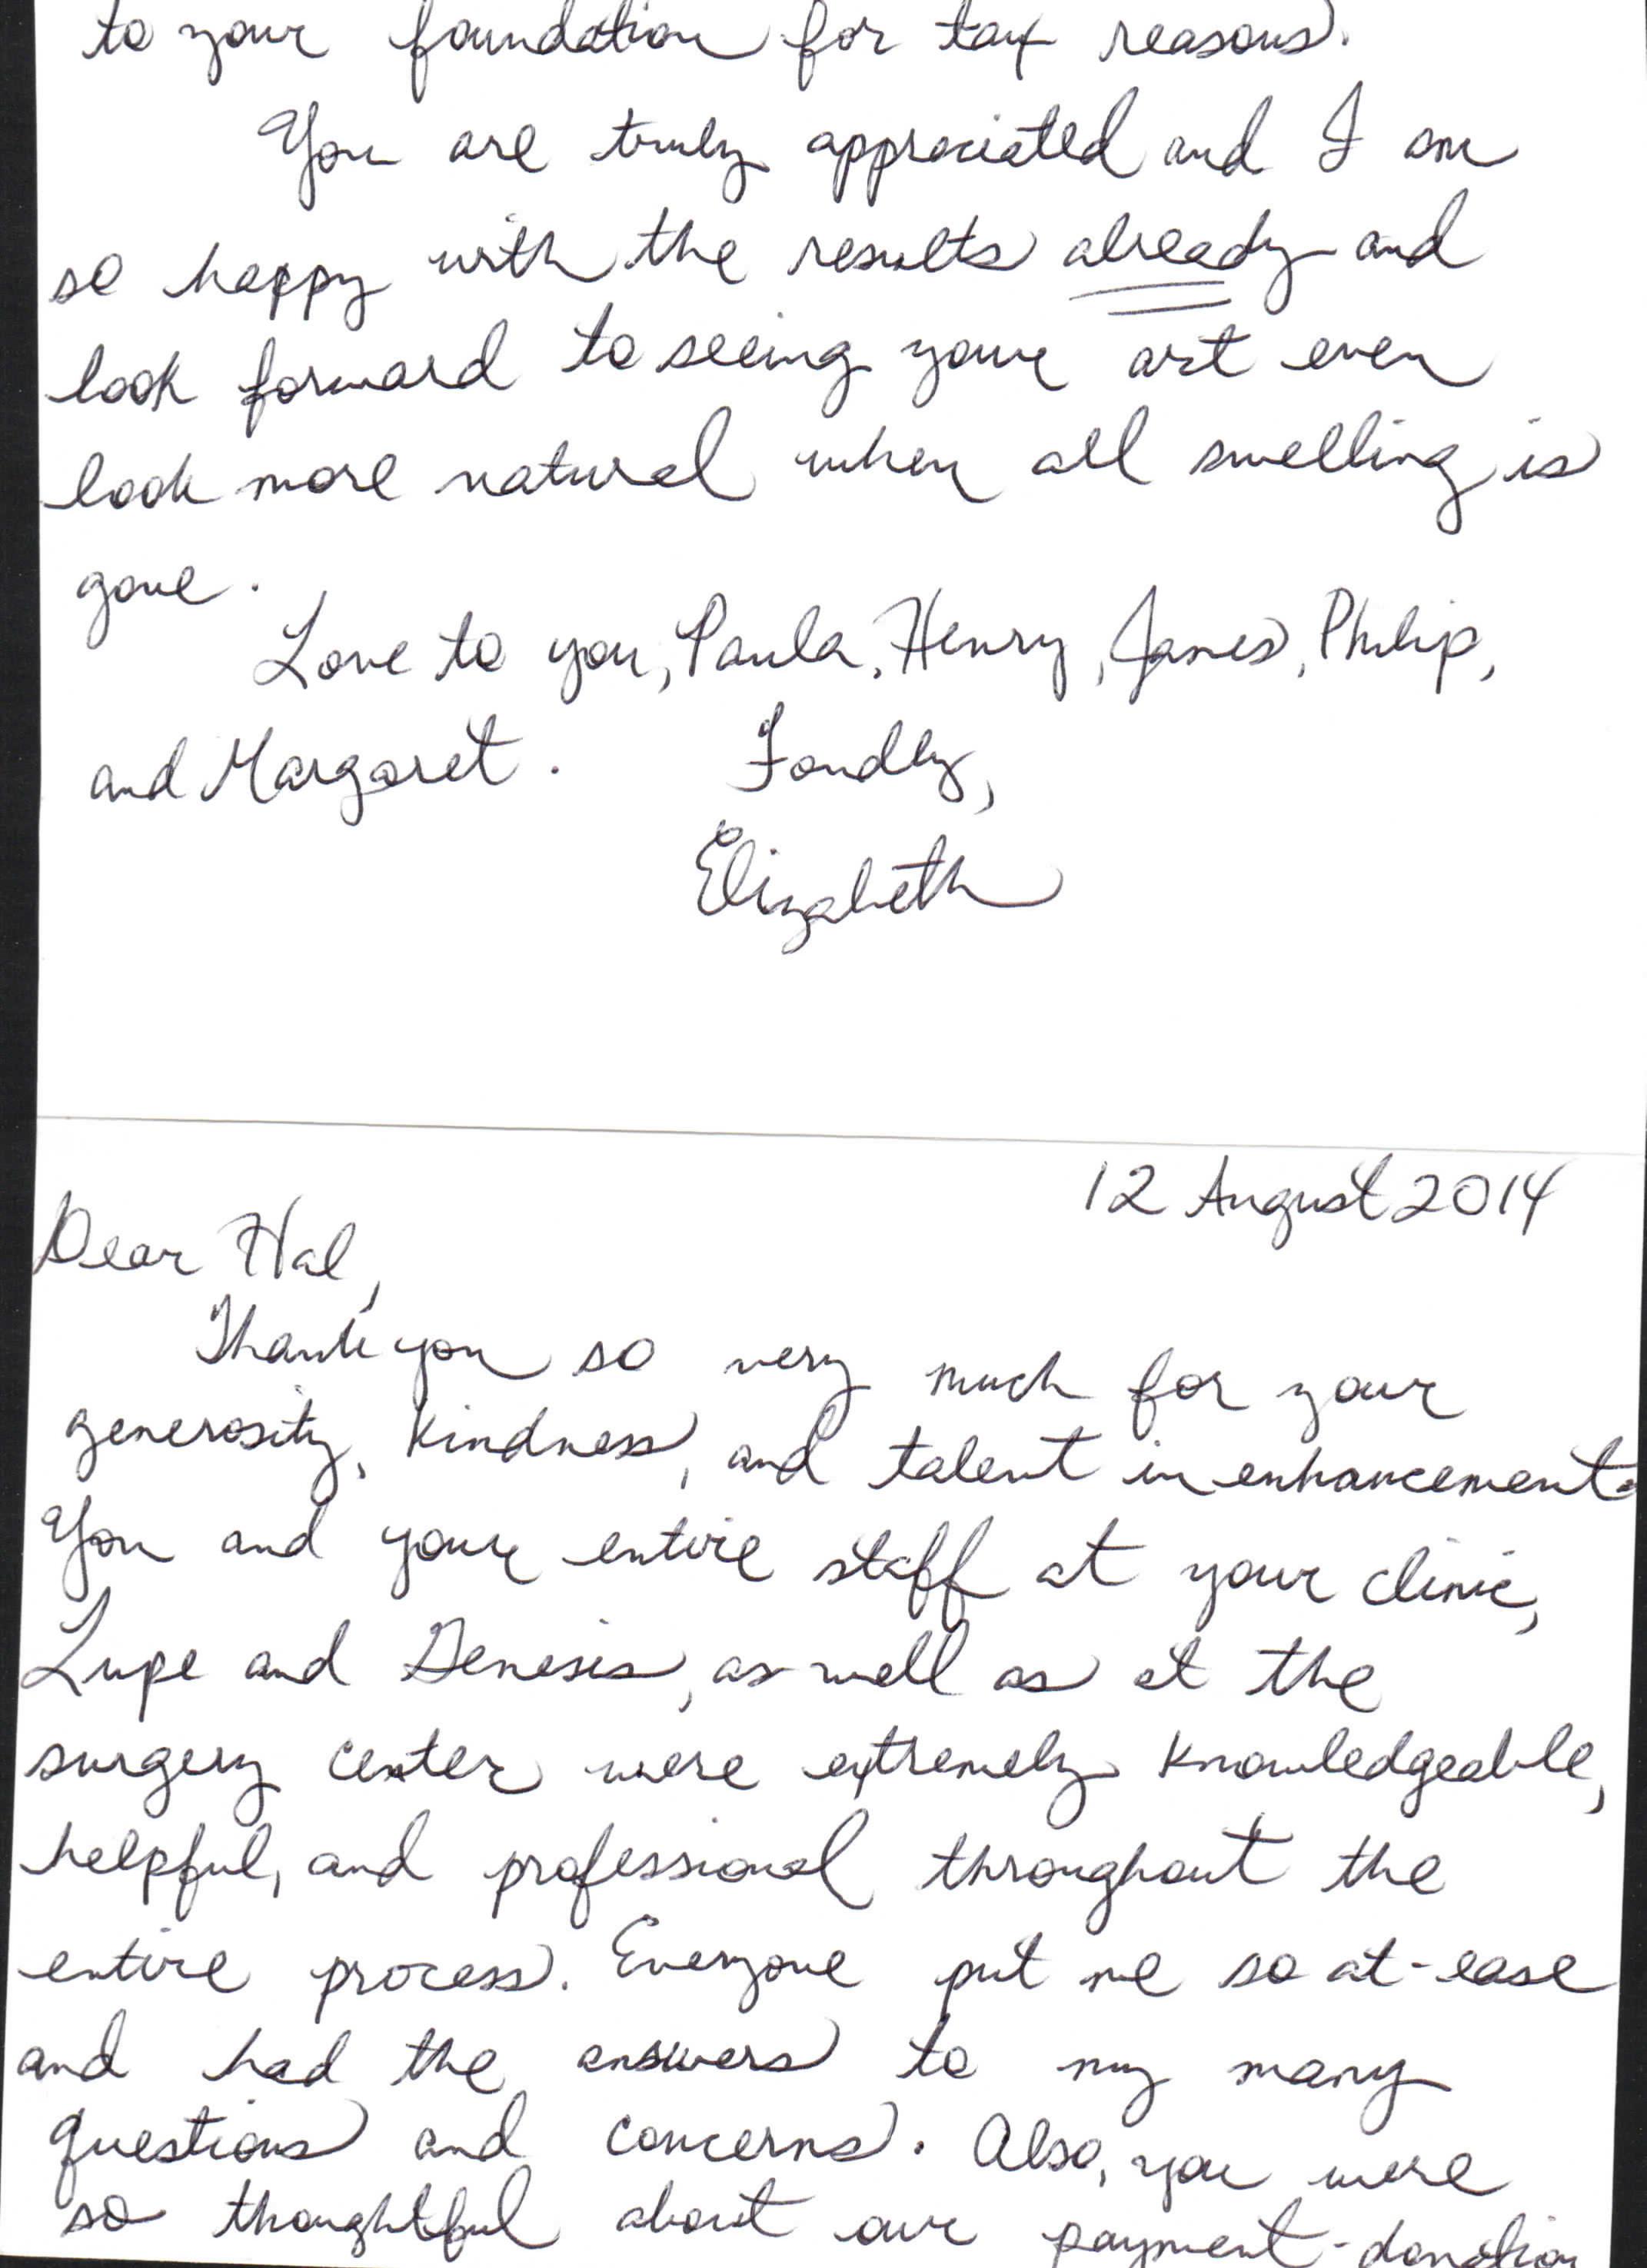 to your foundation for tax reasons).
You are truly appreciated and I am
so happy with the results already and
look forward to seeing your art even
look more natural when all swelling is
gone.
Love to you, Paula, Henry, James, Philip,
and Margaret. Fondly,
Elizabeth
12 August 2014
Dear Hal,
Thank you so very much for your
generosity, kindness, and talent in enhancement.
You and your entire staff at your clinic,
Lupe and Genesis, as well as at the
surgery center were extremely knowledgeable,
helpful, and professional throughout the
entire process. Everyone put me so at-ease
and had the answers to my many
questions and concerns. Also, you were
so thoughtful about our payment-donation